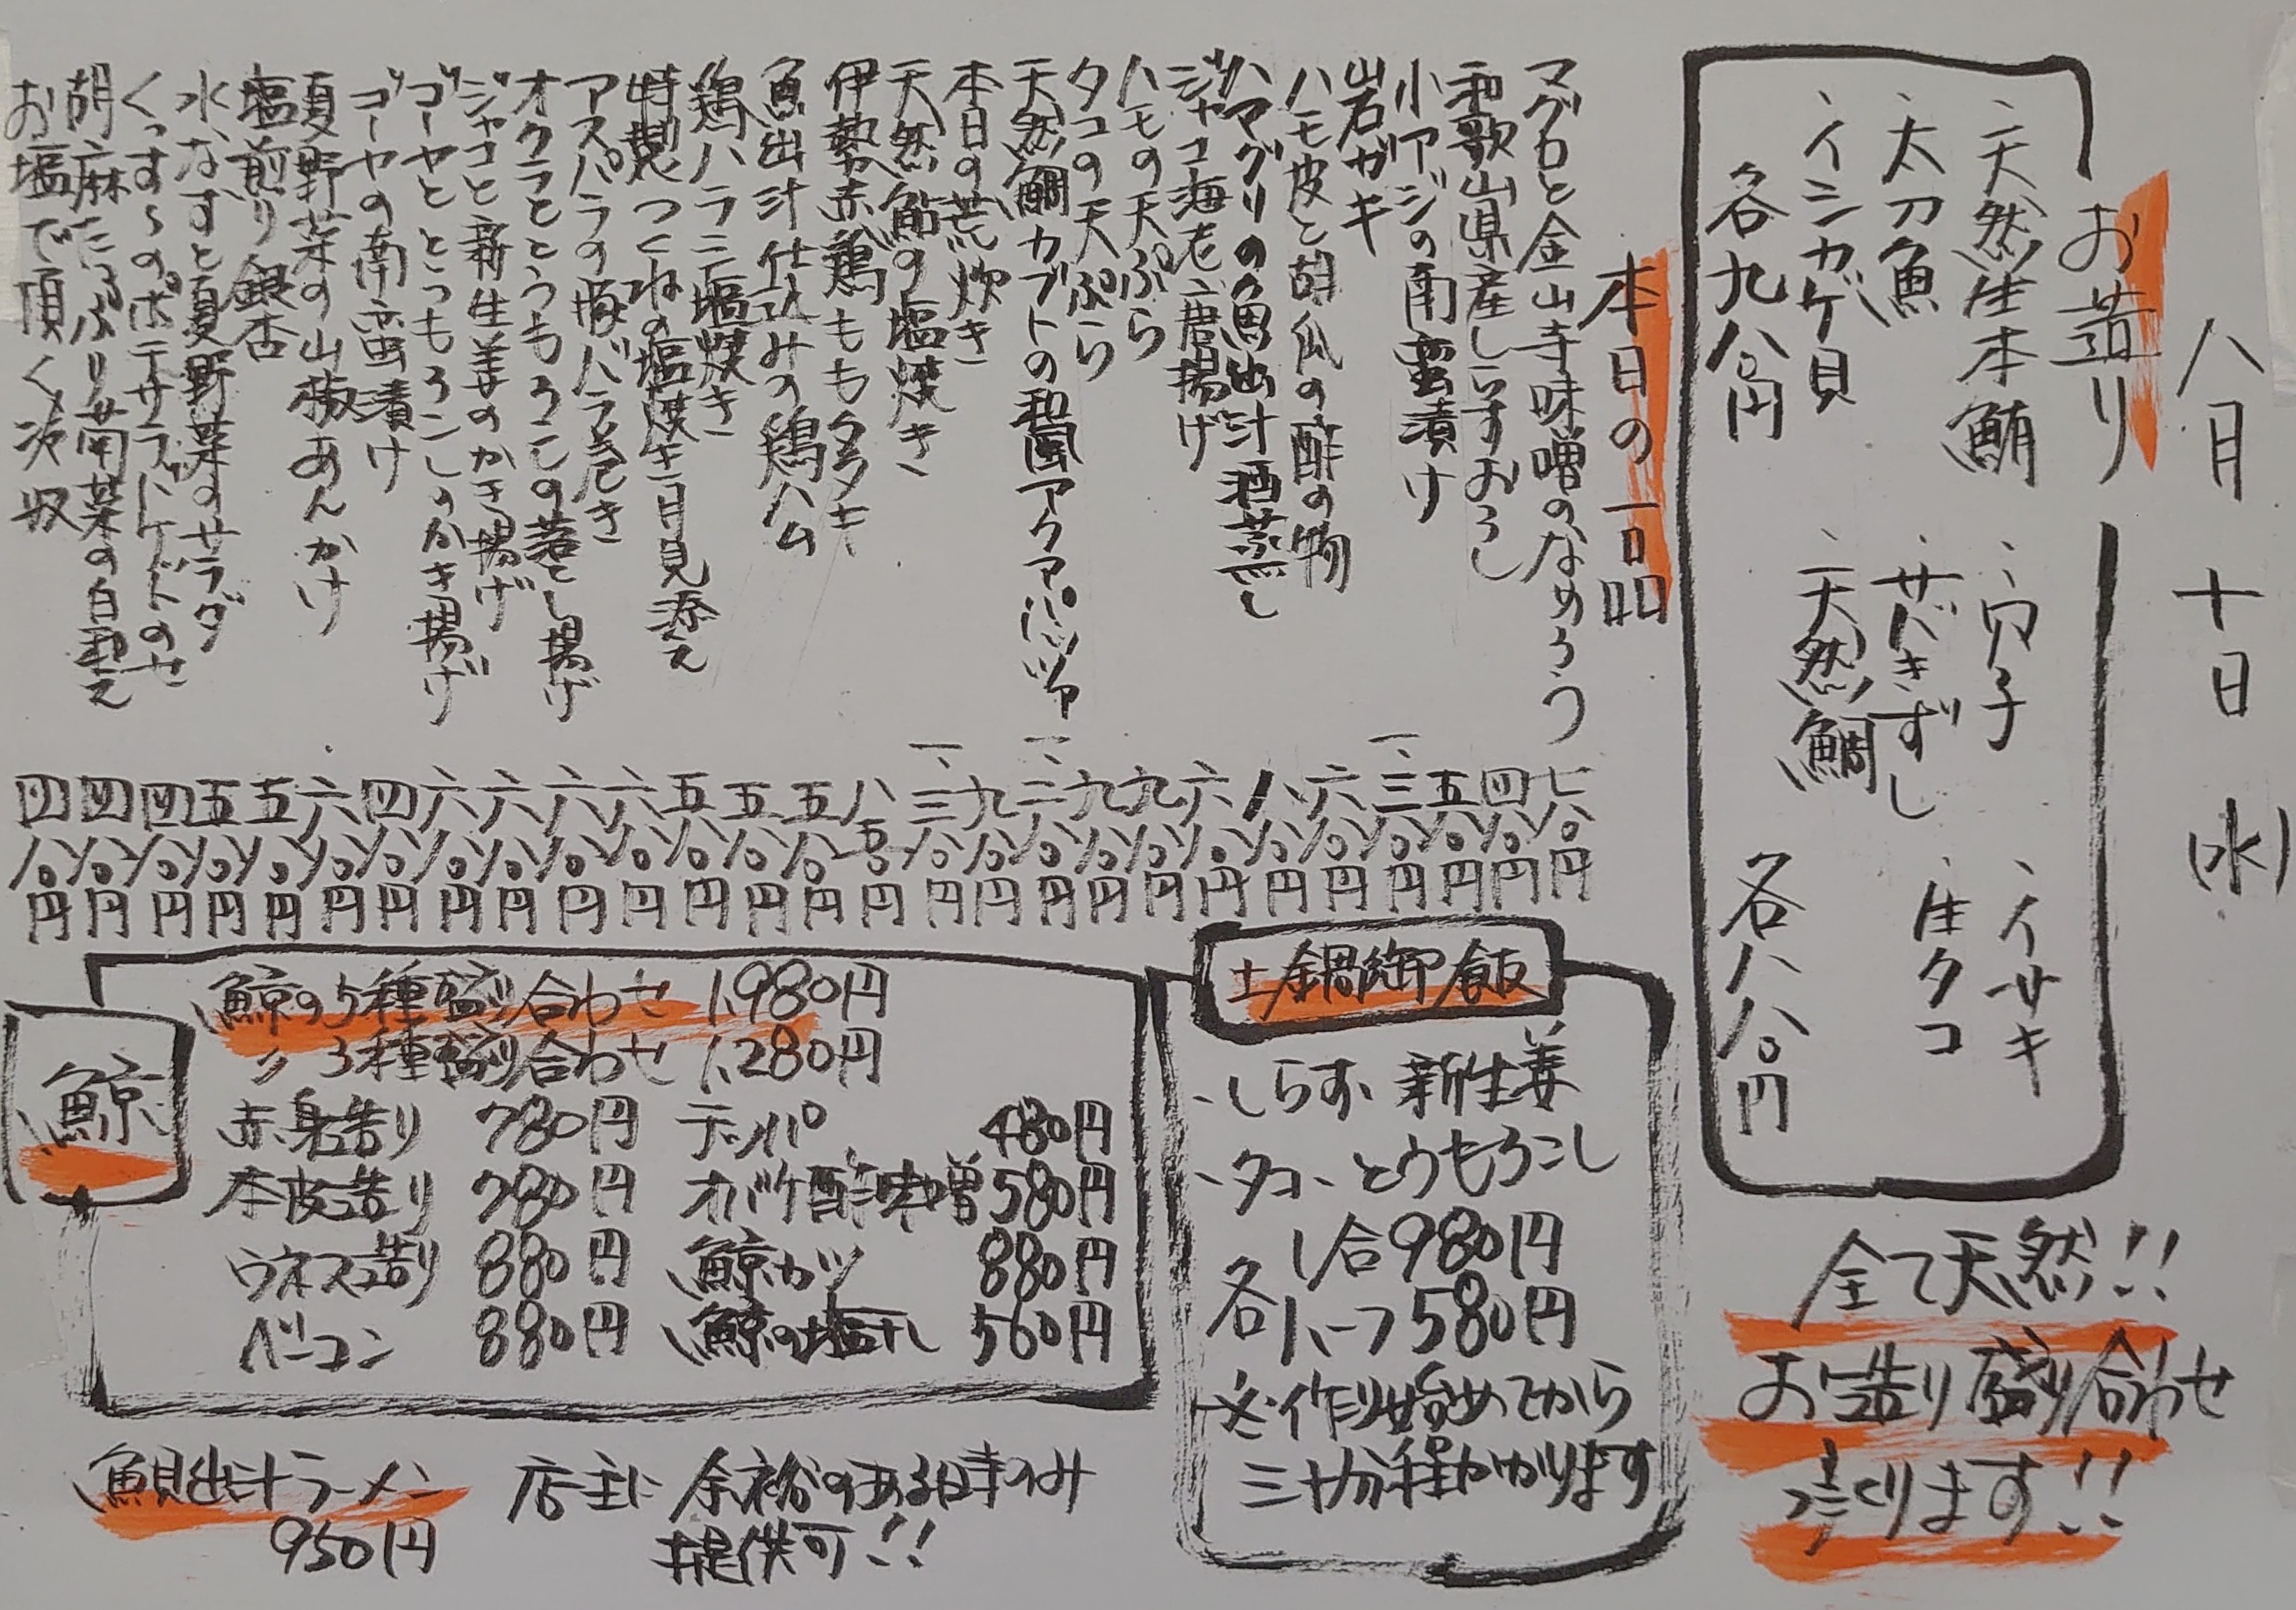 八月十日(水)
お造り
、天然生本鮪
、太刀魚
、イシカゲ貝
各九八〇円
、穴子
、サバきずし
、天然鯛
、イサキ
、生タコ
各八八〇円
全て天然!!
お造り盛り合わせ
造ります!!
本日の一品
マグロと金山寺味噌のなめろう 七八〇円
和歌山県産しらすおろし 四八〇円
小アジの南蛮漬け 五八〇円
岩ガキ 一、三八〇円
ハモ皮と胡瓜の酢の物 六八〇円
ハマグリの魚出汁酒蒸し 八八〇円
ジャコ海老唐揚げ 六八〇円
ハモの天ぷら 九八〇円
タコの天ぷら 九八〇円
天然鯛カブトの和風アクアパッツァ 一、二八〇円
本日の荒炊き 九八〇円
天然鮎の塩焼き 一、三八〇円
伊勢赤鶏ももタタキ 八五〇円
魚出汁仕込みの鶏ハム 五八〇円
鶏ハラミ塩焼き 五八〇円
特製つくねの塩焼き月見添え 五八〇円
アスパラの豚バラ巻き 六八〇円
オクラととうもろこしの落とし揚げ 六八〇円
ジャコと新生姜のかき揚げ 六八〇円
ゴーヤととうもろこしのかき揚げ 六八〇円
ゴーヤの南蛮漬け 四八〇円
夏野菜の山椒あんかけ 六八〇円
塩煎り銀杏 五八〇円
水なすと夏野菜のサラダ 五八〇円
くっすぅのポテサラドケドトのせ 四八〇円
胡麻たっぷり青菜の白和え 四八〇円
お塩で頂く冷奴 四八〇円
土鍋御飯
、しらす、新生姜
、タコ、とうもろこし
各 1合980円
ハーフ580円
※作り始めてから
三十分程かかります
鯨
鯨の5種盛り合わせ 1,980円
〃 3種盛り合わせ 1,280円
赤身造り 780円 テッパ 480円
本皮造り 780円 オバケ酢味噌 580円
ウネス造り 880円 鯨カツ 880円
ベーコン 880円 鯨の塩干し 560円
魚貝出汁ラーメン
950円
店主に余裕のある時のみ
提供可!!